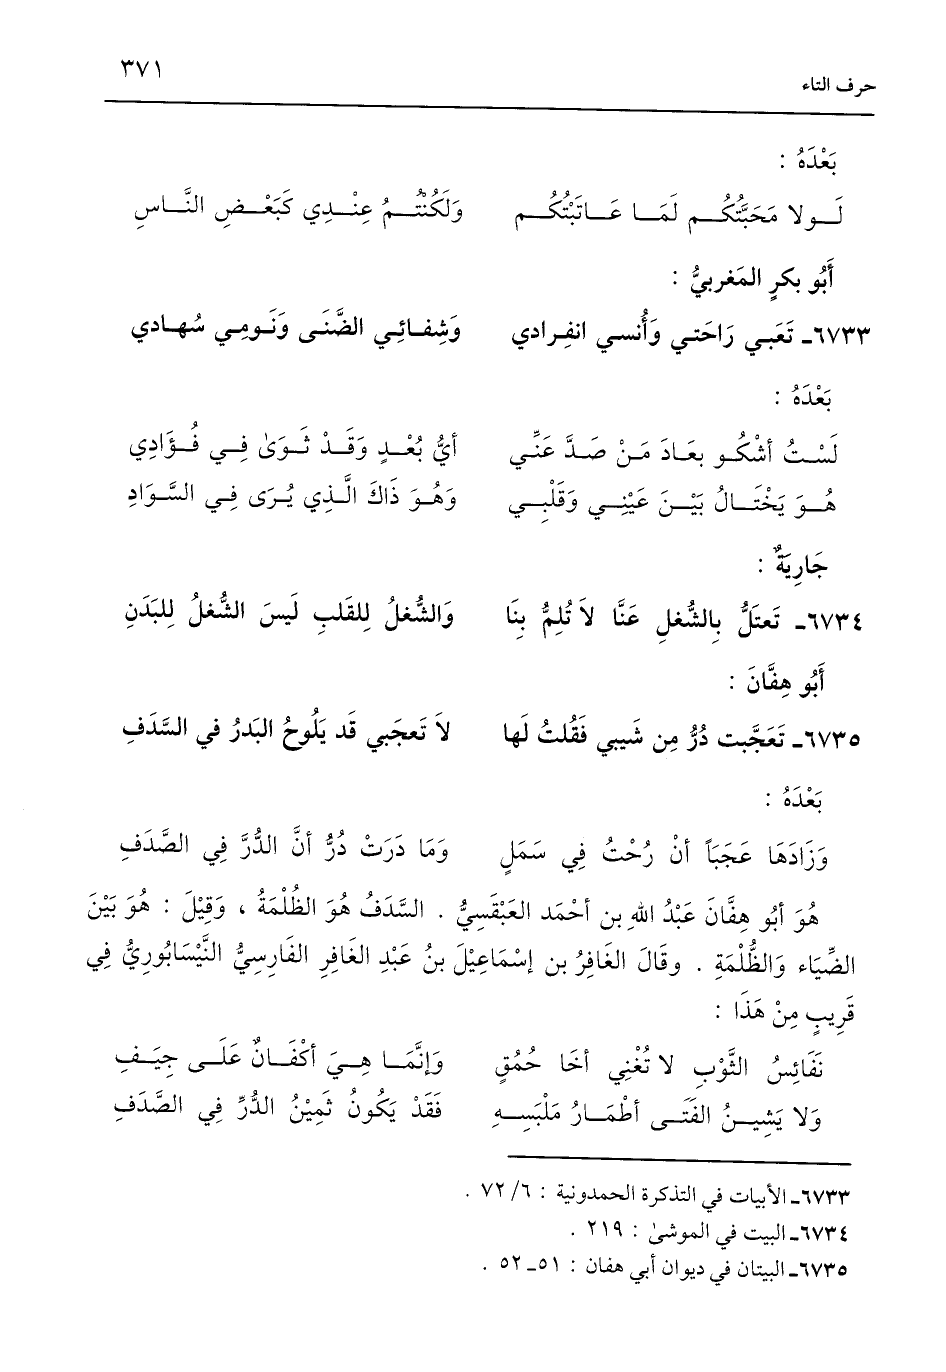 حرف التاء ٣٧١
بَعْدَهُ :
لَـولا مَحَبَّتُكُـم لَمَـا عَـاتَبْتُكُـم وَلَكُنْتُـمُ عِنْـدِي كَبَعْـضِ النَّـاسِ
أَبُو بكرٍ المَغربيُّ :
٦٧٣٣ـ تَعَبـي رَاحَتـي وَأُنسـي انفِـرادي وَشِفـائِـي الضَّنَـى وَنَـومِـي سُهـادي
بَعْدَهُ :
لَسْـتُ أشْكُـو بعَـادَ مَـنْ صَـدَّ عَنِّـي أيُّ بُعْـدٍ وَقَـدْ ثَـوَىٰ فِـي فُـؤَادِي
هُـوَ يَخْتَـالُ بَيْـنَ عَيْنِـي وَقَلْبِـي وَهُـوَ ذَاكَ الَّـذِي يُـرَى فِـي السَّـوَادِ
جَارِيَةٌ :
٦٧٣٤ـ تَعتَلُّ بِالشُّغلِ عَنَّا لاَ تُلِمُّ بِنَا وَالشُّغلُ لِلقَلبِ لَيسَ الشُّغلُ لِلبَدَنِ
أَبُو هِفَّانَ :
٦٧٣٥ـ تَعَجَّبت دُرُّ مِن شَيبي فَقُلتُ لَها لاَ تَعجَبي قَد يَلُوحُ البَدرُ في السَّدَفِ
بَعْدَهُ :
وَزَادَهَا عَجَبَاً أنْ رُحْتُ فِي سَمَلٍ وَمَا دَرَتْ دُرُّ أنَّ الدُّرَّ فِي الصَّدَفِ
هُوَ أبُو هِفَّانَ عَبْدُ اللهِ بن أحْمَد العَبْقَسِيُّ . السَّدَفُ هُوَ الظُلْمَةُ ، وَقِيْلَ : هُوَ بَيْنَ
الضِّيَاء وَالظُّلْمَةِ . وقَالَ الغَافِرُ بن إسْمَاعِيْلَ بنُ عَبْدِ الغَافِرِ الفَارِسِيُّ النَّيْسَابُورِيُّ فِي
قَرِيبٍ مِنْ هَذَا :
نَفَائِسُ الثَّوْبِ لا تُغْنِي أخَا حُمُقٍ وَإنَّمَـا هِـيَ أكْفَـانٌ عَلَـى جِيَـفِ
وَلا يَشِيـنُ الفَتَـى أطْمَـارُ مَلْبَسِـهِ فَقَدْ يَكُونُ ثَمِيْنُ الدُرِّ فِي الصَّدَفِ
٦٧٣٣ـ الأبيات في التذكرة الحمدونية : ٦/ ٧٢ .
٦٧٣٤ـ البيت في الموشىٰ : ٢١٩ .
٦٧٣٥ـ البيتان في ديوان أبي هفان : ٥١ـ ٥٢ .